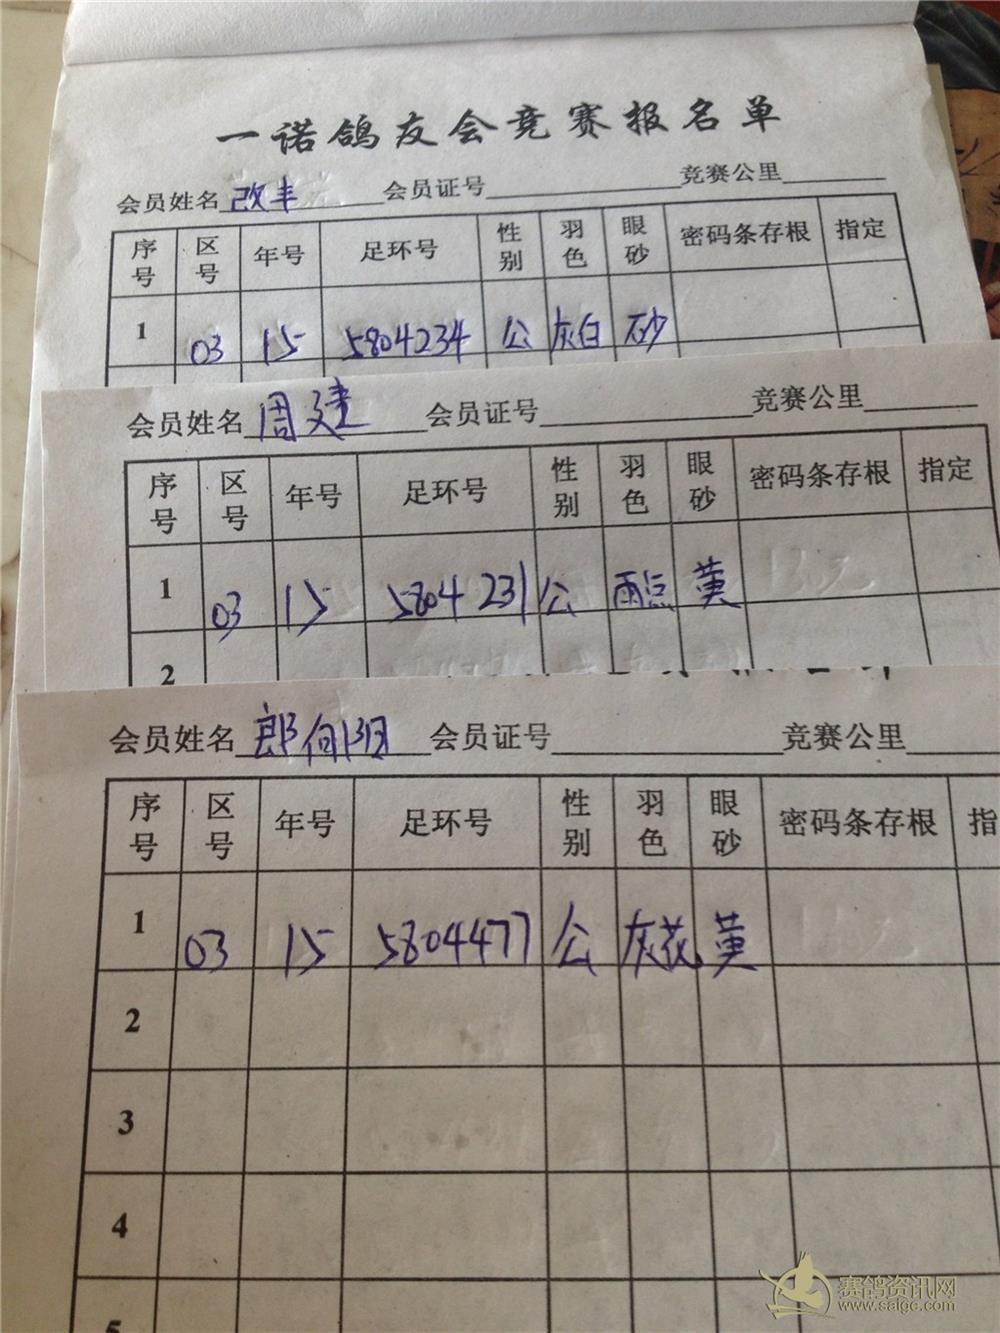 一诺鸽友会竞赛报名单
会员姓名 改丰 会员证号 竞赛公里
序号 区号 年号 足环号 性别 羽色 眼砂 密码条存根 指定
1 03 15 5804234 公 灰白 砂
会员姓名 周建 会员证号 竞赛公里
序号 区号 年号 足环号 性别 羽色 眼砂 密码条存根 指定
1 03 15 5804231 公 雨点 黄
2
会员姓名 郎向阳 会员证号 竞赛公里
序号 区号 年号 足环号 性别 羽色 眼砂 密码条存根 指
1 03 15 5804477 公 灰花 黄
2
3
4
5
赛鸽资讯网
www.saige.com